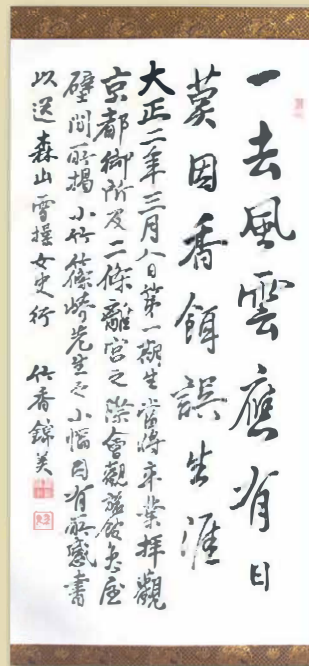 一去風雲應有日
莫因香餌誤生涯
大正二年三月八日第一期生當將卒業拝觀
京都御所及二條離宮之際會觀旅館魚屋
壁間所掲小竹篠崎先生之小幅因有所感書
以送森山雪操女史行 竹香錦美